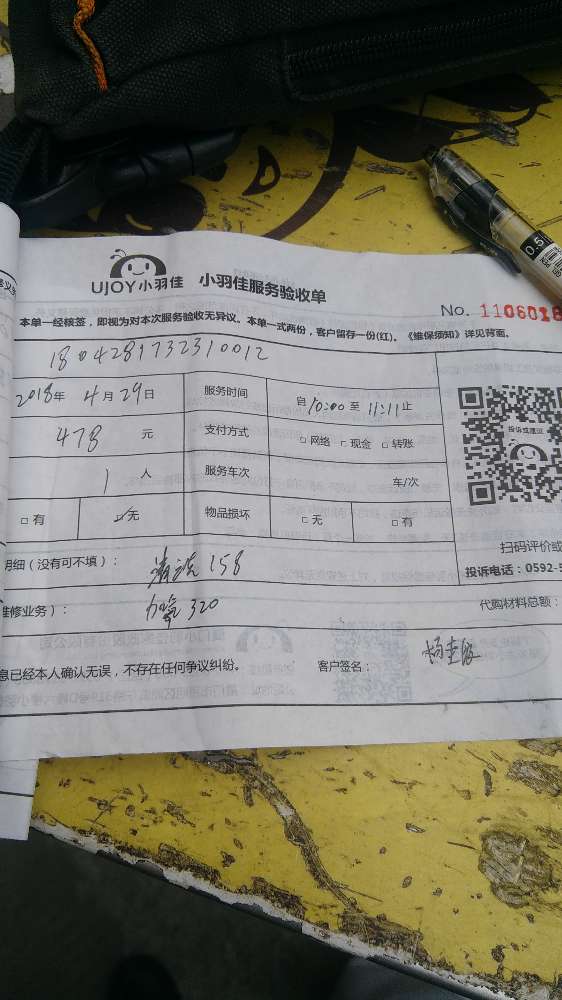 UJOY小羽佳 小羽佳服务验收单
No. 1106018
本单一经核签，即视为对本次服务验收无异议。本单一式两份，客户留存一份(红)。《维保须知》详见背面。
1804281732310012
2018年 4月29日 服务时间 自10:00至11:11止
478 元 支付方式 □ 网络 □ 现金 □ 转账
投诉或建议
1 人 服务车次 车/次
□ 有 □ 无 物品损坏 □ 无 □ 有
扫码评价或
明细（没有可不填）： 清洗 158
投诉电话：0592-5
维修业务）： 加氟 320
代购材料总额：
息已经本人确认无误，不存在任何争议纠纷。 客户签名：
0.5